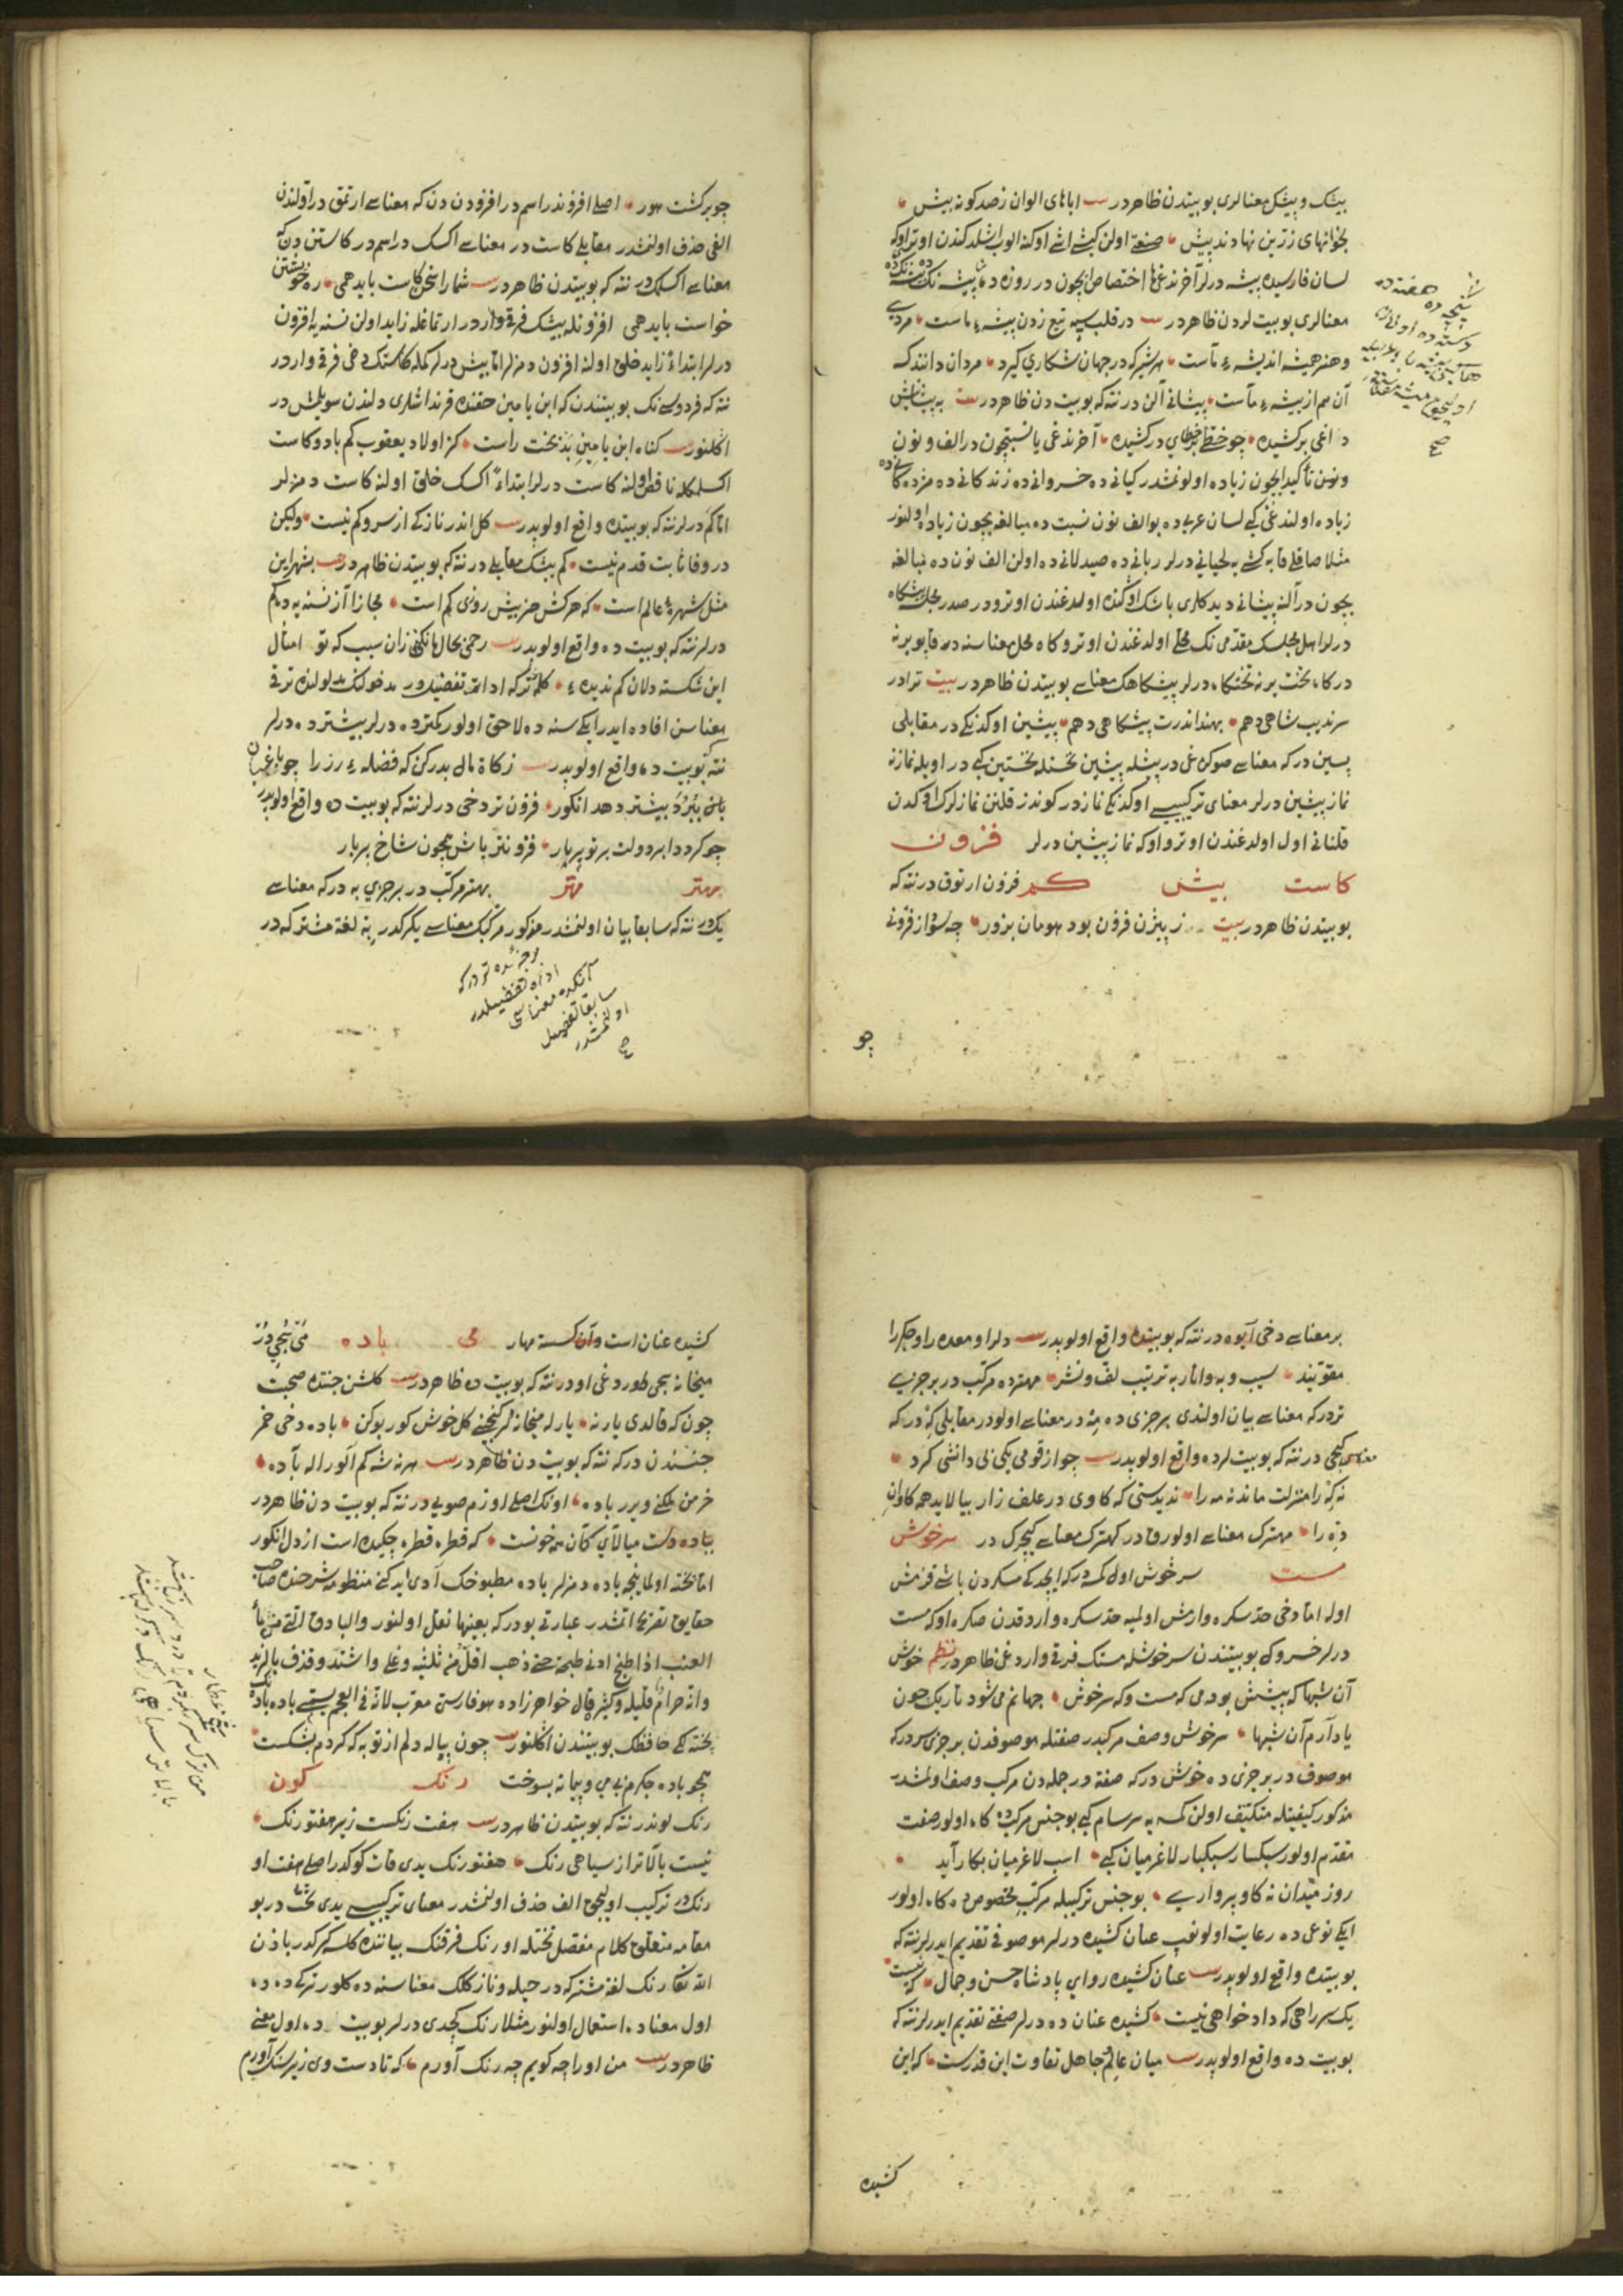 بیشک و بیشکل معنالری بو بیتدن ظاهردر بیت اباهای الوان زصد کونه بیش
بخوانهای زرین نهادند پیش
لسان فارسیده پیشه درلر آخرنده
معنالری بو بیت لردن ظاهردر بیت در قلب سپه تیغ زدن پیشهٔ ماست مردی
وهنر همیشه اندیشهٔ ماست هر شیر که در جهان شکاری کیرد مردان دانند که
آن هم از بیشهٔ ماست پیشانی آلن در نته که بو بیت دن ظاهردر بیت به پیشانیش
داغی برکشیده چو خطی بر خطای درکشیده آخرنده یا نسبتچون در الف و نون
زیاده اولندغی کبی لسان عربی ده بو الف نون نسبت ده مبالغه یچون زیاده اولنور
مثلا صاقلی قابه کشی یه لحیانی درلر ربانی ده صیدلانی ده اولن الف نون ده مبالغه
یچون در آلنه پیشانی دیدکلری باشک اوکنده اولدغندن اوترودر صدر مجلسه پیشکاه
درلر اهل مجلسک مقدمی نک محلی اولدغندن اوترو کاه محل معناسنه در قاپو یرنه
درکاه تخت یرنه تختکاه درلر پیشکاهک معناسی بو بیتدن ظاهردر بیت ترا در
سرندیب شاهی دهم بهند اندرت پیشکاهی دهم پیشین اوکدنکی در مقابلی
پسین در که معناسی صوکره غی در پیشله پیشین نخستله نخستین کبی در اویله نمازنه
نماز پیشین درلر معنای ترکیبیسی اوکدنکی نماز در کوندز قلنن نمازلرک اوکدن
قلنانی اول اولدغندن اوترو اوکه نماز پیشین درلر فزون
کاست بیش کم فزون ارتوق در نته که
بو بیتدن ظاهردر بیت ز بیژن فزون بود هومان بزور چه سود از فزونی
چو
چو برکشت هور اصلی افزوندر اسم در افزودن دن که معناسی ارتمق در اولندن
الفی حذف اولنمشدر مقابلی کاست در معناسی اکسک در اسم در کاستن دن که
معناسی اکسلمک در نته که بو بیتدن ظاهردر بیت شما را سخن کاست باید همی ره خویشتن
خواست باید همی افزونله بیشک فرقی واردر ارتماغله زاید اولن نسنه یه افزون
درلر ابتداءً زاید خلق اولنه افزون دمزلر اما بیش درلر کمله کاستک دخی فرقی واردر
نته که فردوسی نک بو بیتندن که ابن یامین حقنده قرنداشلری دلندن سویلمش در
اکلنور بیت کناه ابن یامین بد بخت راست کز اولاد یعقوب کم باد و کاست
اکسلمکله ناقص اولنه کاست درلر ابتداءً اکسک خلق اولنه کاست دمزلر
اما کم درلر نته که بو بیتده واقع اولوبدر بیت کل اندر نازکی از سرو کم نیست ولیکن
در وفا ثابت قدم نیست کم بیشک مقابلی در نته که بو بیتدن ظاهردر بیت بشهر این
مثل شهرهٔ عالم است که هر کش هنر بیش روزی کم است مجازا آز نسنه یه ده کم
درلر نته که بو بیت ده واقع اولوبدر بیت رحمی بحال ما نکنی زان سبب که تو امثال
این شکسته دلان کم ندیدهٔ کلمهٔ تر که ادات تفضیل در مدخولنک مدلولنده ترقی
معناسن افاده ایدر ایکیسنه ده لاحق اولور کمتر ده درلر بیشتر ده درلر
نته که بو بیت ده واقع اولوبدر بیت زکاة مال بدر کن که فضلهٔ رز را چو باغبان
ببرد بیشتر دهد انکور فزون تر دخی درلر نته که بو بیت ده واقع اولوبدر
چو کردد ابر دولت بر تو پر بار فزونتر باش همچون شاخ پر بار
بهتر مهتر بهتر مرکب در بر جزئی به در که معناسی
یک در نته که سابقا بیان اولنمشدر مذکور مرکبک معناسی یکرکدر به لغة مشترکه در
بر جزئی ده تر در که
ادات تفضیلدر
آنکده معناسی
سابقا تفصیل
اولنمشدر
صح
بر معناسی دخی آیوه در نته که بو بیتده واقع اولوبدر بیت دل را و معده را و جکر را
مقویند سیب و به و انار به ترتیب لف و نشر مهتر ده مرکب در بر جزئی
تر در که معناسی بیان اولندی بر جزئی ده مه در معناسی اولودر مقابلی که در که
معناسی کیچی در نته که بو بیت لرده واقع اولوبدر بیت چو از قومی یکی بی دانشی کرد
نه که را منزلت ماند نه مه را ندیدستی که کاوی در علف زار بیالاید همه کاوان
ده را مهترک معناسی اولورق در کهترک معناسی کیچرک در سرخوش
مست سرخوش اول کمسه در که ایچدکی مسکردن باشی قزمش
اوله اما دخی حد سکره وارمش اولمیه حد سکره واردقدن صکره اوکه مست
درلر خسروک بو بیتندن سرخوشله مستک فرقی واردغی ظاهردر نظم خوش
آن شبها که پیشش بودمی که مست و که سرخوش جهانم می شود تاریک چون
یاد آرم آن شبها سرخوش وصف مرکبدر صفتله موصوفدن بر جزئی سر در که
موصوف در بر جزئی ده خوش در که صفة در جمله دن مرکب وصف اولنمشدر
مذکور کیفیتله متکیف اولن کمسه یه سرسام کبی بو جنس مرکبده کاه اولور صفت
مقدم اولور سبکسار سبکبار لاغر میان کبی اسب لاغر میان بکار آید
روز میدان نه کاو پرواری بو جنس ترکیبله مرکب مخصوص ده کاه اولور
ایکی نوعی ده رعایت اولونوب عنان کشیده درلر موصوفی تقدیم ایدرلر نته که
بو بیتده واقع اولوبدر بیت عنان کشیده رو ای پادشاه حسن و جمال که نیست
یک سر راهی که داد خواهی نیست کشیده عنان ده درلر صفتی تقدیم ایدرلر نته که
بو بیت ده واقع اولوبدر بیت میان عالم و جاهل تفاوت این قدرست که این
کشیده
کشیده عنان است و آن کسسته مهار می باده
میخانه یچی طوردغی اودر نته که بو بیت ده ظاهردر بیت کلشن جنتده صحبت
چون که قالدی یارنه یارله میخانه لر کنجنی کل خوش کوربوکن باده دخی خمر
جنسندن در که نته که بو بیت دن ظاهردر بیت هر نه شه کم آلور اله باده
خرمن عقلنی ویرر باده اونک اصلی اوزم صویی در نته که بو بیت دن ظاهردر
بباده دست میالای کآن همه خونست که قطره قطره چکیده است از دل انکور
اما پخته اولماینجه باده دمزلر باده مطبوخک آدی ایدکنی منظومه شرحنده صاحب
حقایق تصریح اتمشدر عبارتی بودر که بعینها نقل اولنور والباذق اسم من ماء
العنب اذا طبخ ادنی طبخة حتی ذهب اقل من ثلثیه وغلی واشتد وقذف بالزبد
وانه حرام قلیله وکثیره قال خواهرزاده هو فارسی معرب لانه فی العجم یسمی باده باده نک
پخته کی حافظک بو بیتندن اکلنور بیت چون پیاله دلم از توبه که کردم بشکست
همچو باده جکرم بی می و پیمانه بسوخت رنک کون
رنک لوندر نته که بو بیتدن ظاهردر بیت هفت رنکست زیر هفتورنک
نیست بالاتر از سیاهی رنک هفتورنک یدی قات کوکدر اصلی هفت او
رنک در ترکیب اولیجق الف حذف اولنمشدر معنای ترکیبیسی یدی تخت در بو
مقامه متعلق کلام مفصل تختله اورنک فرقنک بیاننده کلسه کرکدر باذن
الله تعالی رنک لغة مشترکه در حیله و نازکلک معناسنه ده کلور ترکی ده ده
اول معناده استعمال اولنور مثلا رنک کچدی درلر بو بیت ده اول معنی
ظاهردر بیت من او را چه کویم چه رنک آورم که تا دست وی زیر سنک آورم